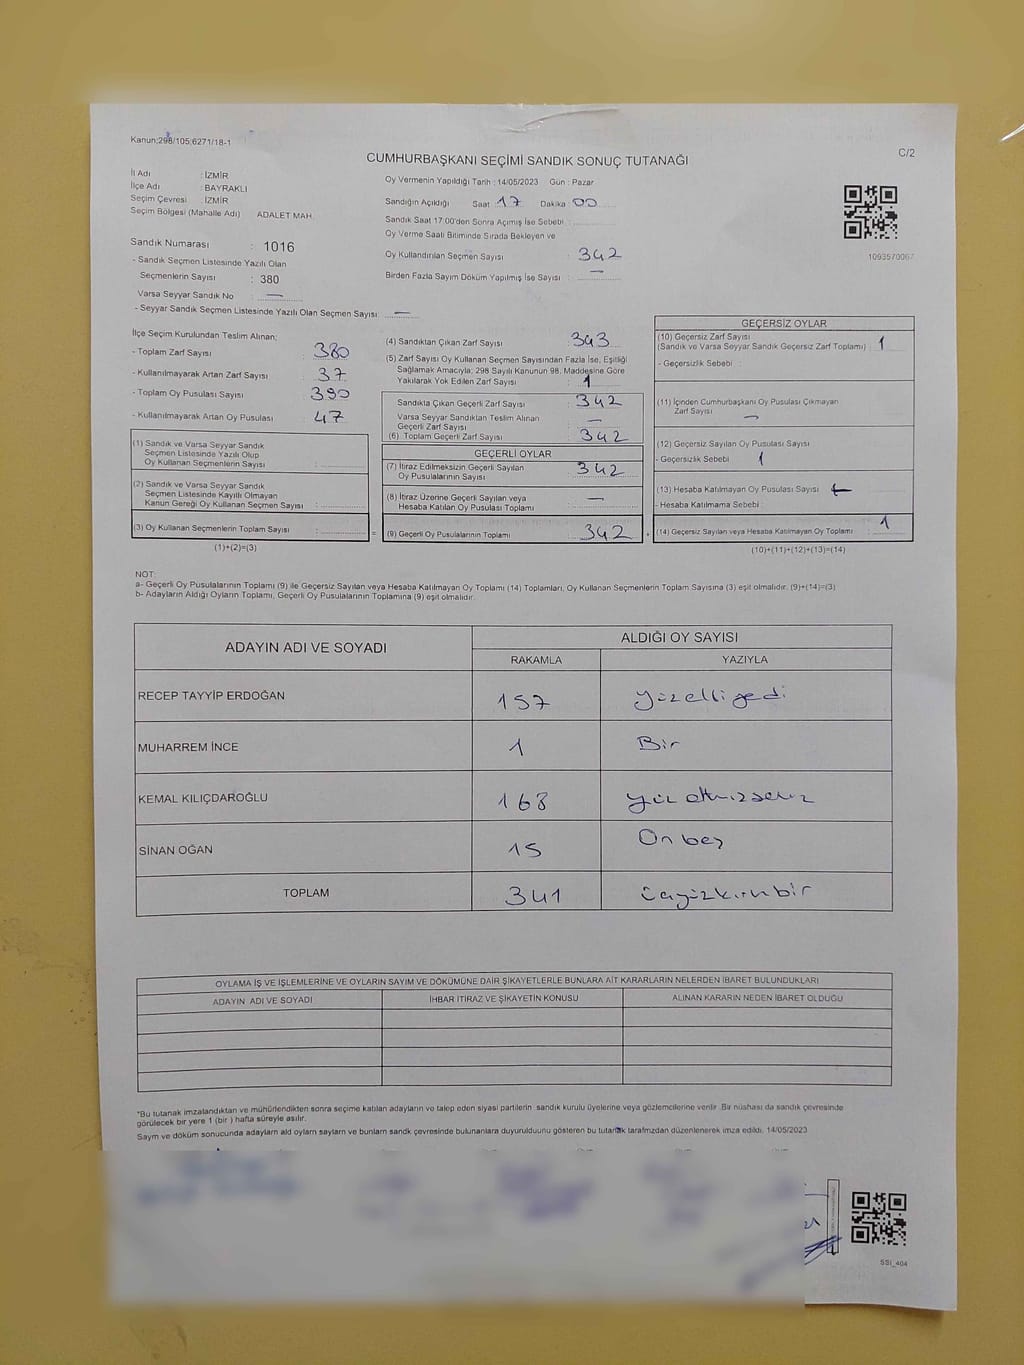 Kanun:298/105,6271/18-1
C/2
CUMHURBAŞKANI SEÇİMİ SANDIK SONUÇ TUTANAĞI
İl Adı : İZMİR
İlçe Adı : BAYRAKLI
Seçim Çevresi : İZMİR
Seçim Bölgesi (Mahalle Adı) ADALET MAH.
Sandık Numarası : 1016
- Sandık Seçmen Listesinde Yazılı Olan
Seçmenlerin Sayısı : 380
Varsa Seyyar Sandık No : —
- Seyyar Sandık Seçmen Listesinde Yazılı Olan Seçmen Sayısı : —
Oy Vermenin Yapıldığı Tarih : 14/05/2023 Gün : Pazar
Sandığın Açıldığı Saat : 17 Dakika : 00
Sandık Saat 17:00'den Sonra Açılmış İse Sebebi :
Oy Verme Saati Bitiminde Sırada Bekleyen ve
Oy Kullandırılan Seçmen Sayısı : 342
Birden Fazla Sayım Döküm Yapılmış İse Sayısı : —
1093570067
İlçe Seçim Kurulundan Teslim Alınan;
- Toplam Zarf Sayısı : 380
- Kullanılmayarak Artan Zarf Sayısı : 37
- Toplam Oy Pusulası Sayısı : 390
- Kullanılmayarak Artan Oy Pusulası : 47
(1) Sandık ve Varsa Seyyar Sandık
Seçmen Listesinde Yazılı Olup
Oy Kullanan Seçmenlerin Sayısı :
(2) Sandık ve Varsa Seyyar Sandık
Seçmen Listesinde Kayıtlı Olmayan
Kanun Gereği Oy Kullanan Seçmen Sayısı :
(3) Oy Kullanan Seçmenlerin Toplam Sayısı :
(1)+(2)=(3)
(4) Sandıktan Çıkan Zarf Sayısı : 343
(5) Zarf Sayısı Oy Kullanan Seçmen Sayısından Fazla İse, Eşitliği
Sağlamak Amacıyla; 298 Sayılı Kanunun 98. Maddesine Göre
Yakılarak Yok Edilen Zarf Sayısı : 1
Sandıkta Çıkan Geçerli Zarf Sayısı : 342
Varsa Seyyar Sandıktan Teslim Alınan
Geçerli Zarf Sayısı : —
(6) Toplam Geçerli Zarf Sayısı : 342
GEÇERLİ OYLAR
(7) İtiraz Edilmeksizin Geçerli Sayılan
Oy Pusulalarının Sayısı : 342
(8) İtiraz Üzerine Geçerli Sayılan veya
Hesaba Katılan Oy Pusulası Toplamı : —
= (9) Geçerli Oy Pusulalarının Toplamı : 342 +
GEÇERSİZ OYLAR
(10) Geçersiz Zarf Sayısı
(Sandık ve Varsa Seyyar Sandık Geçersiz Zarf Toplamı) : 1
- Geçersizlik Sebebi :
(11) İçinden Cumhurbaşkanı Oy Pusulası Çıkmayan
Zarf Sayısı : —
(12) Geçersiz Sayılan Oy Pusulası Sayısı
- Geçersizlik Sebebi : 1
(13) Hesaba Katılmayan Oy Pusulası Sayısı
- Hesaba Katılmama Sebebi :
(14) Geçersiz Sayılan veya Hesaba Katılmayan Oy Toplamı : 1
(10)+(11)+(12)+(13)=(14)
NOT:
a- Geçerli Oy Pusulalarının Toplamı (9) ile Geçersiz Sayılan veya Hesaba Katılmayan Oy Toplamı (14) Toplamları, Oy Kullanan Seçmenlerin Toplam Sayısına (3) eşit olmalıdır. (9)+(14)=(3)
b- Adayların Aldığı Oyların Toplamı, Geçerli Oy Pusulalarının Toplamına (9) eşit olmalıdır.
ADAYIN ADI VE SOYADI ALDIĞI OY SAYISI
RAKAMLA YAZIYLA
RECEP TAYYİP ERDOĞAN 157 yüzelliyedi
MUHARREM İNCE 1 Bir
KEMAL KILIÇDAROĞLU 168 yüz altmışsekiz
SİNAN OĞAN 15 Onbeş
TOPLAM 341 üçyüzkırkbir
OYLAMA İŞ VE İŞLEMLERİNE VE OYLARIN SAYIM VE DÖKÜMÜNE DAİR ŞİKAYETLERLE BUNLARA AİT KARARLARIN NELERDEN İBARET BULUNDUKLARI
ADAYIN ADI VE SOYADI İHBAR İTİRAZ VE ŞİKAYETİN KONUSU ALINAN KARARIN NEDEN İBARET OLDUĞU
*Bu tutanak imzalandıktan ve mühürlendikten sonra seçime katılan adayların ve talep eden siyasi partilerin sandık kurulu üyelerine veya gözlemcilerine verilir. Bir nüshası da sandık çevresinde
görülecek bir yere 1 (bir ) hafta süreyle asılır.
Saym ve döküm sonucunda adaylarn ald oylarn saylarn ve bunlarn sandk çevresinde bulunanlara duyurulduunu gösteren bu tutanak tarafmzdan düzenlenerek imza edildi. 14/05/2023
SSI_404